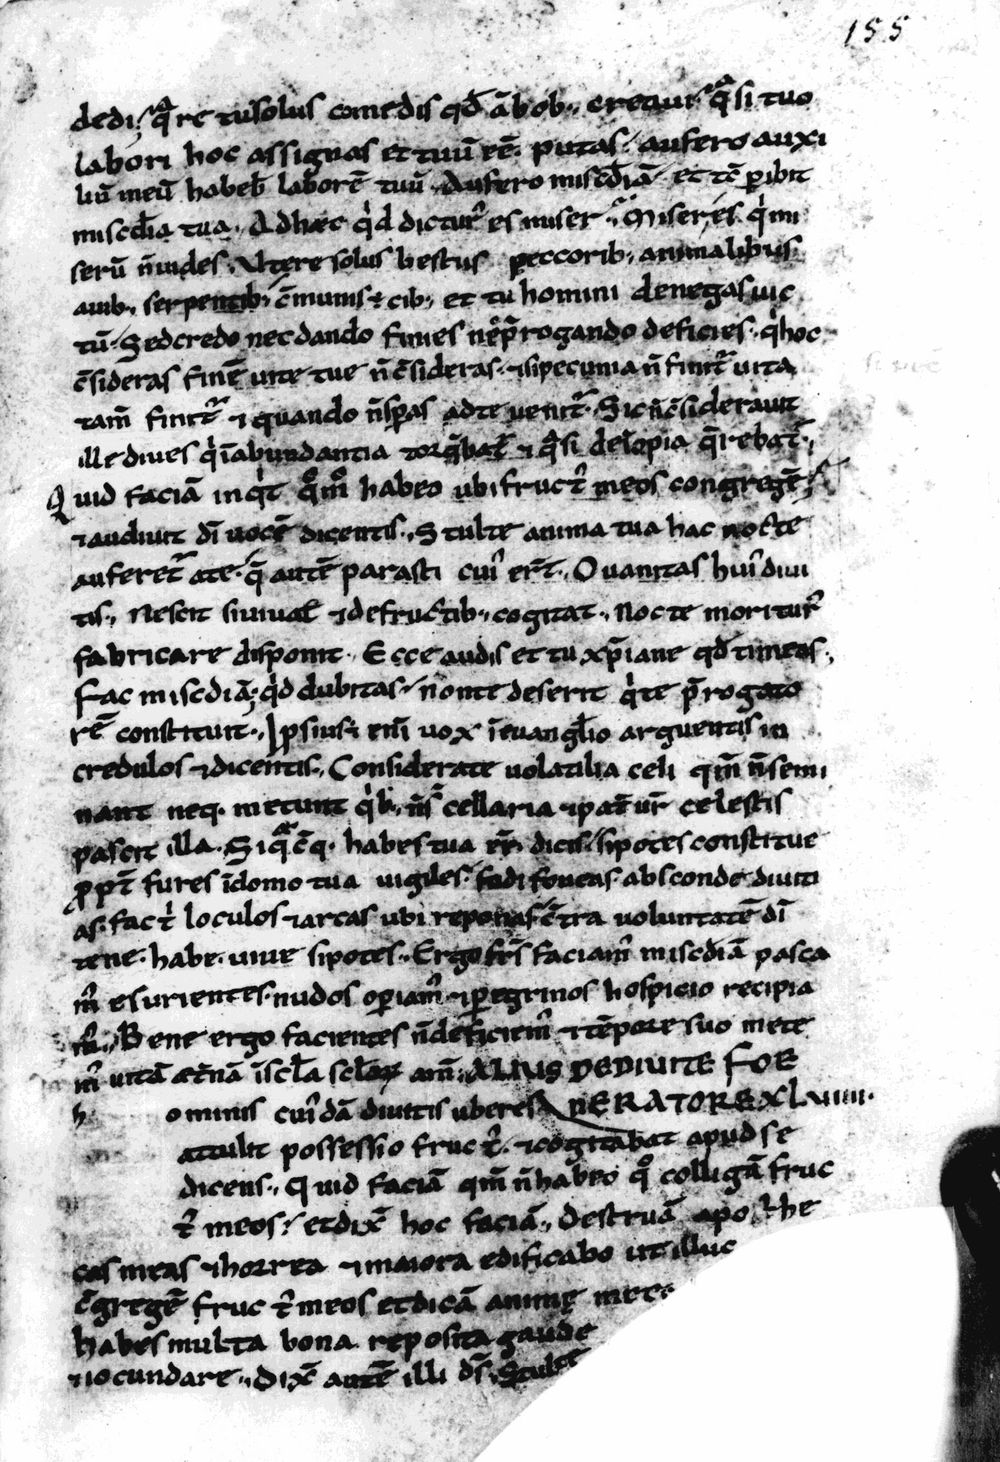 155
dedi; q̃re tu solus comedis qđ ābob; creaui. q̃si tuo
labori hoc assignas et tuū eē putas. aufero auxi
liū meū habeƀ laborē tuū. Aufero miscđiā et tē p̱ibit
miscđia tua. Ad hęc qͥd dictur̃ es miser. Miser es qͥ mi
serū n̄ uides. Utere solus bestiis peccorib; animalibus
auib; serpentib; c̄munis ÷ cib; et tu homini denegas uic
tū. Sed credo nec dando finies nec p̃rogando deficies. qͥ hoc
c̄sideras finē uite tue n̄ c̄sideras. & si pecunia n̄ finit̃ uita
tam̄ finit̃ & quando n̄ sp̱as ad te uenit̃. Sic n̄ c̄siderauit
ille diues qͥ ī abundantia torq̄bat̃ & q̃si de īopia q̄rebat̃;
Quid faciā inqͥt qm̊ habeo ubi fruct᷒ meos congregē;
& audiuit dī uocē dicentis. Stulte anima tua hac nocte
auferet̃ a te. q̄ autē parasti cui᷒ erit̃. O uanitas hui᷒ diui
tis; Nescit si uiuat & de fructib; cogitat. Nocte moritur᷒
fabricare disponit. Ecce audis et tu xp̄iane qđ timeas;
Fac miscdiā; qͥd dubitas. non te deserit qͥ te p̃rogato
rē constituit. Ipsius ÷ eni᷒ uox ī euanglio arguentis in
credulos & dicentis; Considerate uolatilia celi qm̄ n̄ semi
nant neq; metunt qͥb; n̄ s̄ cellaria & pat̃ ur̃ celestis
pascit illa. Si q̃cq; habes tua eē dicis. si potes constitue
ꝓpt̃ fures ī domo tua uigiles. fodi foueas absconde diuiti
as. fac tͥ loculos & arcas ubi reponas. c̄tra voluntatē dī
tene. habe. uiue si potes. Ergo fr̄s faciam᷒ miscđiā pasca
m᷒ esurientes. nudos op̱iam᷒. & p̱egrinos hospicio recipia
m᷒. Bene ergo facientes n̄ deficiem᷒ & tēpore suo mete
m᷒ uitā æt̃nā ī scl̄a scl̄oꝝ am̄. ALIUS DE DIUITE FOE
h ominis cui᷒dā diuitis uberes NERATORE XLVIIII.
attulit possessio fruct᷒. & cogitabat apud se
dicens; Quid faciā qm̄ n̄ habeo qͦ colligā fruc
t᷒ meos. et dix̄ hoc faciā. Destruā apothe
cas meas & horrea & maiora edificabo ut illuc
c̄gregē fruct᷒ meos et dicā anime meę
habes multa bona reposita gaude
& iocundare. Dix̄ autē illi d̄s. Stulte